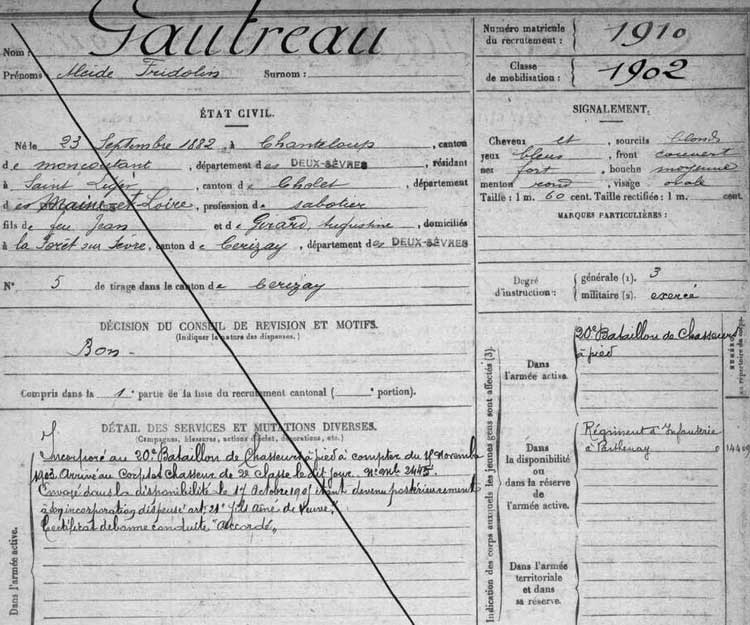 Nom : Gautreau
Prénoms Alcide Fridolin Surnom :
ÉTAT CIVIL.
Né le 23 Septembre 1882, à Chanteloup, canton
de moncoutant, département des DEUX-SÈVRES, résidant
à Saint Léger, canton de Cholet, département
des Maine et Loire, profession de sabotier
fils de feu Jean et de Girard Augustine, domiciliés
à la Forêt sur Sèvre, canton de Cerizay, département des DEUX-SÈVRES
N° 5 de tirage dans le canton de Cerizay
DÉCISION DU CONSEIL DE REVISION ET MOTIFS.
(Indiquer la nature des dispenses.)
Bon
Compris dans la 1e partie de la liste du recrutement cantonal ( portion).
DÉTAIL DES SERVICES ET MUTATIONS DIVERSES.
(Campagnes, blessures, actions d'éclat, décorations, etc.)
Incorporé au 20e Bataillon de Chasseurs à pied à compter du 15 Novembre
1903. Arrivé au Corps et Chasseur de 2e classe le dit jour. N° Mle 2445.
Envoyé dans la disponibilité le 17 Octobre 1905 étant devenu postérieurement
à son incorporation dispensé art. 21 "fils Aîné de Veuve".
Certificat de bonne conduite "Accordé"
Dans l'armée active.
Numéro matricule
du recrutement : 1910
Classe
de mobilisation : 1902
SIGNALEMENT.
Cheveux et, sourcils blonds
yeux bleus, front couvert
nez fort, bouche moyenne
menton rond, visage ovale
Taille : 1 m. 60 cent. Taille rectifiée : 1 m. cent.
MARQUES PARTICULIÈRES :
Degré
d'instruction :
générale (1). 3
militaire (2). exercé
Indication des corps auxquels les jeunes gens sont affectés (3).
Dans
l'armée active.
20e Bataillon de Chasseurs
à pied
NUMÉRO
au répertoire du corps.
Dans
la disponibilité
ou
dans la réserve
de
l'armée active.
Régiment d'Infanterie
de Parthenay
Dans l'armée
territoriale
et dans
sa réserve.